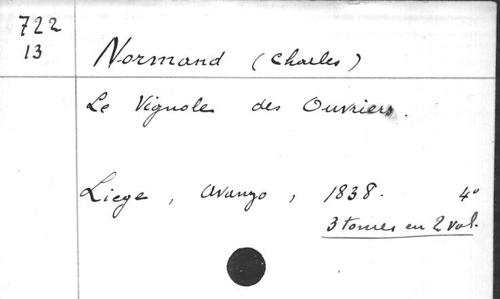 722
13
Normand (Charles)
Le Vignole des Ouvriers.
Liege, Avanzo, 1838. 4°
3 tomes en 2 vol.